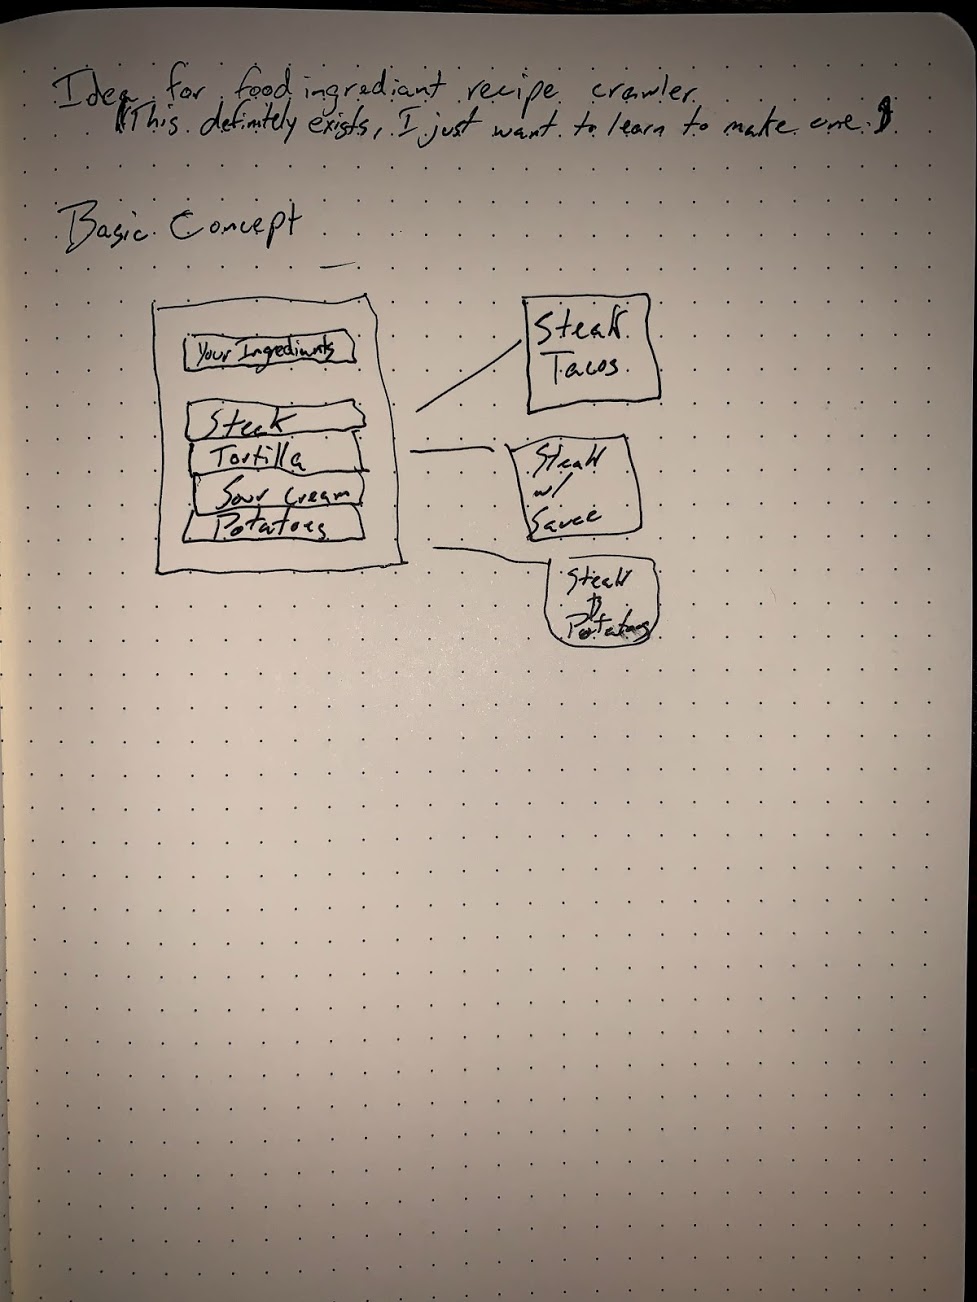 Idea for food ingrediant recipe crawler
(This definitely exists, I just want to learn to make one.)
Basic Concept
Your Ingrediants
Steak
Tortilla
Sour Cream
Potatoes
Steak
Tacos
Steak
w/
Sauce
Steak
&
Potatoes